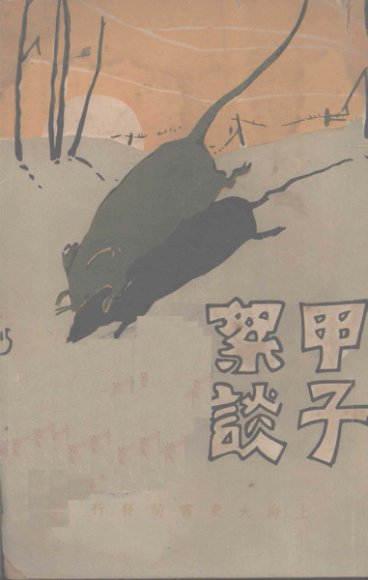 甲子
絮談
上海大東書局發行